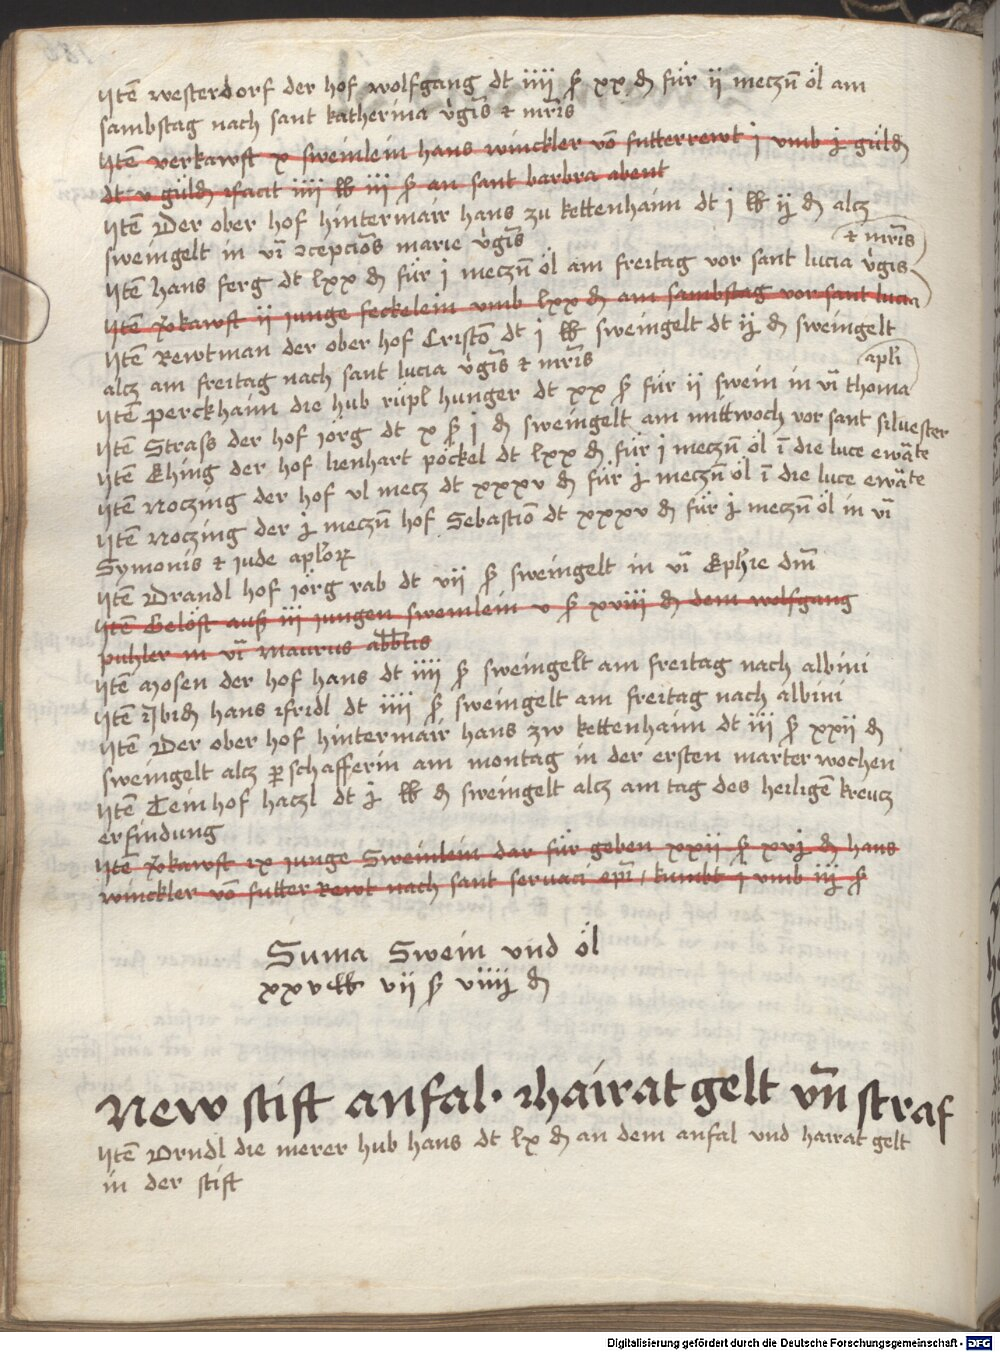 Itē westerdorf der hof wolfgang dt iiii ß xx ₰ für ii meczn̄ öl am
sambstag nach sant katherina v̓gīs et mr̄is
Itē verkawft x sweinlein hans winckler vō futterrewt j vmb j güld̄
dt v güld̄ facit iiii lb iii ß an sant barbra abent
Itē Der ober hof hintermair hans zu kettenhaim dt j lb ij ₰ alcz
sweingelt in vī ↄcepciōs marie v̓gīs
et mr̄is
Itē hans ferg dt lxx ₰ für j meczn̄ öl am freitag vor sant lucia v̓gis
Itē v̓kawft ij junge feckelein vmb lxx ₰ am sambstag vor sant lucia
Itē Rewtman der ober hof Cristō dt j lb sweingelt dt ij ₰ sweingelt
alcz am freitag nach sant lucia v̓gīs et mr̄is
apl̄i
Itē Perckhaim die hub rüpl hunger dt xx ß für ii swein in vī thoma
Itē Strass der hof jörg dt x ß j ₰ sweingelt am mittwoch vor sant siluester
Itē Ehing der hof lienhart pöckel dt lxx ₰ für j meczn̄ öl ī die luce ewāte
Itē Noczing der hof vl mecz dt xxxv ₰ für j meczn̄ öl ī die luce ewāte
Itē Noczing der j meczn̄ hof Sebastiō dt xxxv ₰ für j meczn̄ öl in vī
Symonis et jude aplōꝝ
Itē Brandl hof jörg rab dt vii ß sweingelt in vī Eph̄ie dm̄
Itē Gelöst auß iii jungen sweinlein v ß xviii ₰ dem wolfgang
puhler in vī Maurus abbtis
Itē Mosen der hof hans dt iiii ß sweingelt am freitag nach albini
Itē hans fridl dt iiii ß sweingelt am freitag nach albini
Itē Der ober hof hintermair hans zw kettenhaim dt iii ß xxii ₰
sweingelt alcz ꝑ schafferin am montag in der ersten marter wochen
Itē Teinhof haczl dt j lb ₰ sweingelt alcz am tag des heiligē kreucz
erfindung
Itē v̓kawft ix junge Sweinlein dar für geben xxii ß xvj ₰ hans
winckler vō futter Rewt nach sant seruaci ep̄i kumbt j vmb iij ß
Suma Swein vnd öl
xxv lb vii ß viiij ₰
New stift anfal · Hairat gelt vn̄ straf
Itē Orndl die merer hub hans dt lx ₰ an dem anfal vnd hairat gelt
in der stift
Digitalisierung gefördert durch die Deutsche Forschungsgemeinschaft - DFG